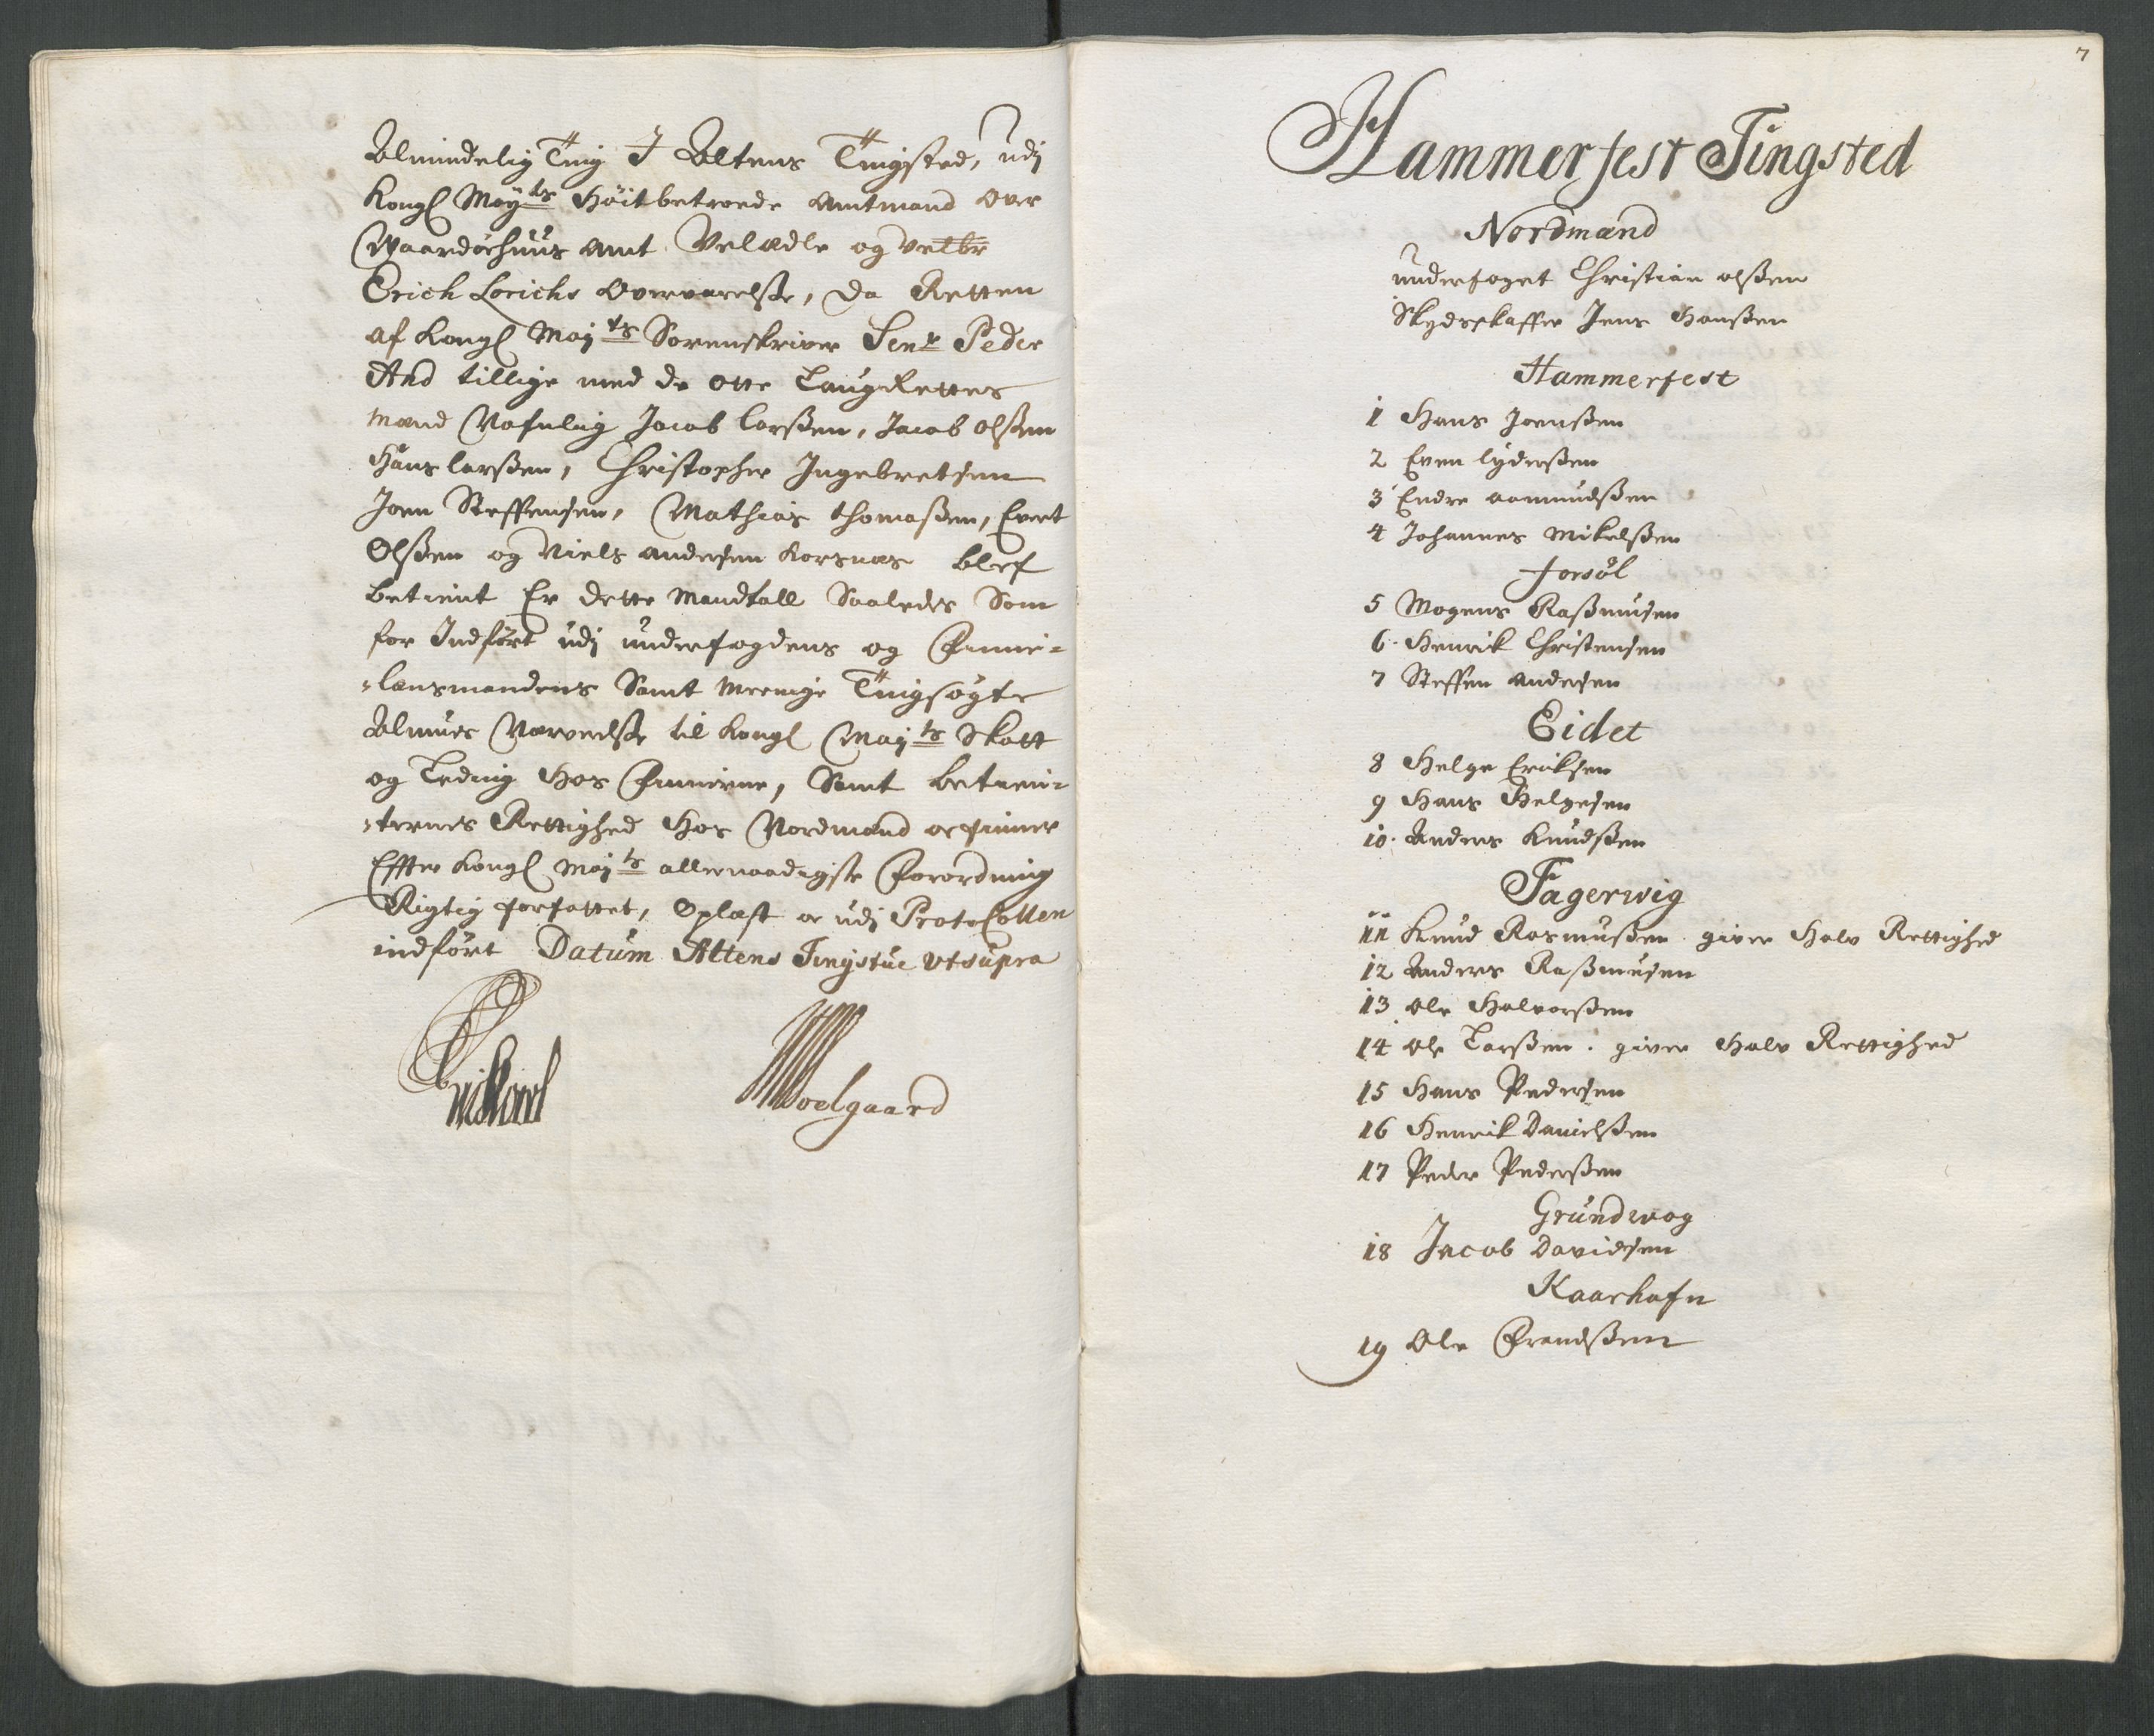 Almindelig Ting I Altens Tingsted, udj
Kongl Mayts Höitbetroede Amtmand over
Waardöehuus Amt Velædle og Velbr
Erich Lorichs Overværelse, da Retten
af Kongl Majts Sorenskriver Senr Peder
And tillige med de otte LaugRettes
mænd Nafnlig Jacob Larßen, Jacob Olßen
Hans Larßen, Christopher Ingebretsen
Joen Steffensen, Mathias Thomaßen, Evert
Olßen og Niels Andersen Korsnæs blef
betient Er dette Mandtall Saaledes Som
for Indfört udj underfogdens og Finne-
-lænsmandens Samt Meenige Tingsögte
Almues Nærverelße til Kongl Majts Skatt
og Leding Hos Finnerne, Samt betien-
-ternes Rettighed Hos Nordmænd oc finner
Effter Kongl Majts allernaadigste Forordning
Rigtig forfattet, Oplæst oc udj Protocollen
indfört Datum Altens Tingstue Utsupra
Woelgaard
7
Hammerfest Tingsted
Nordmænd
underfoget Christian Olßen
Skydsskaffer Jens Hanßen
Hammerfest
1 Hans Joenßen
2 Even Lyderßen
3 Endre Aamundßen
4 Johannes Mikelßen
Forsöl
5 Mogens Raßmusen
6 Henrik Christensen
7 Steffen Andersen
Eidet
8 Helge Eriksen
9 Hans Helgesen
10 Anders Knudßen
Fagerwig
11 Knud Rasmußen giver Halv Rettighed
12 Anders Raßmusen
13 Ole Halvorßen
14 Ole Larßen. giver Halv Rettighed
15 Hans Pedersen
16 Henrik Danielßen
17 Peder Pederßen
Grundwog
18 Jacob Davidsen
Kaarhafn
19 Ole Frandßen